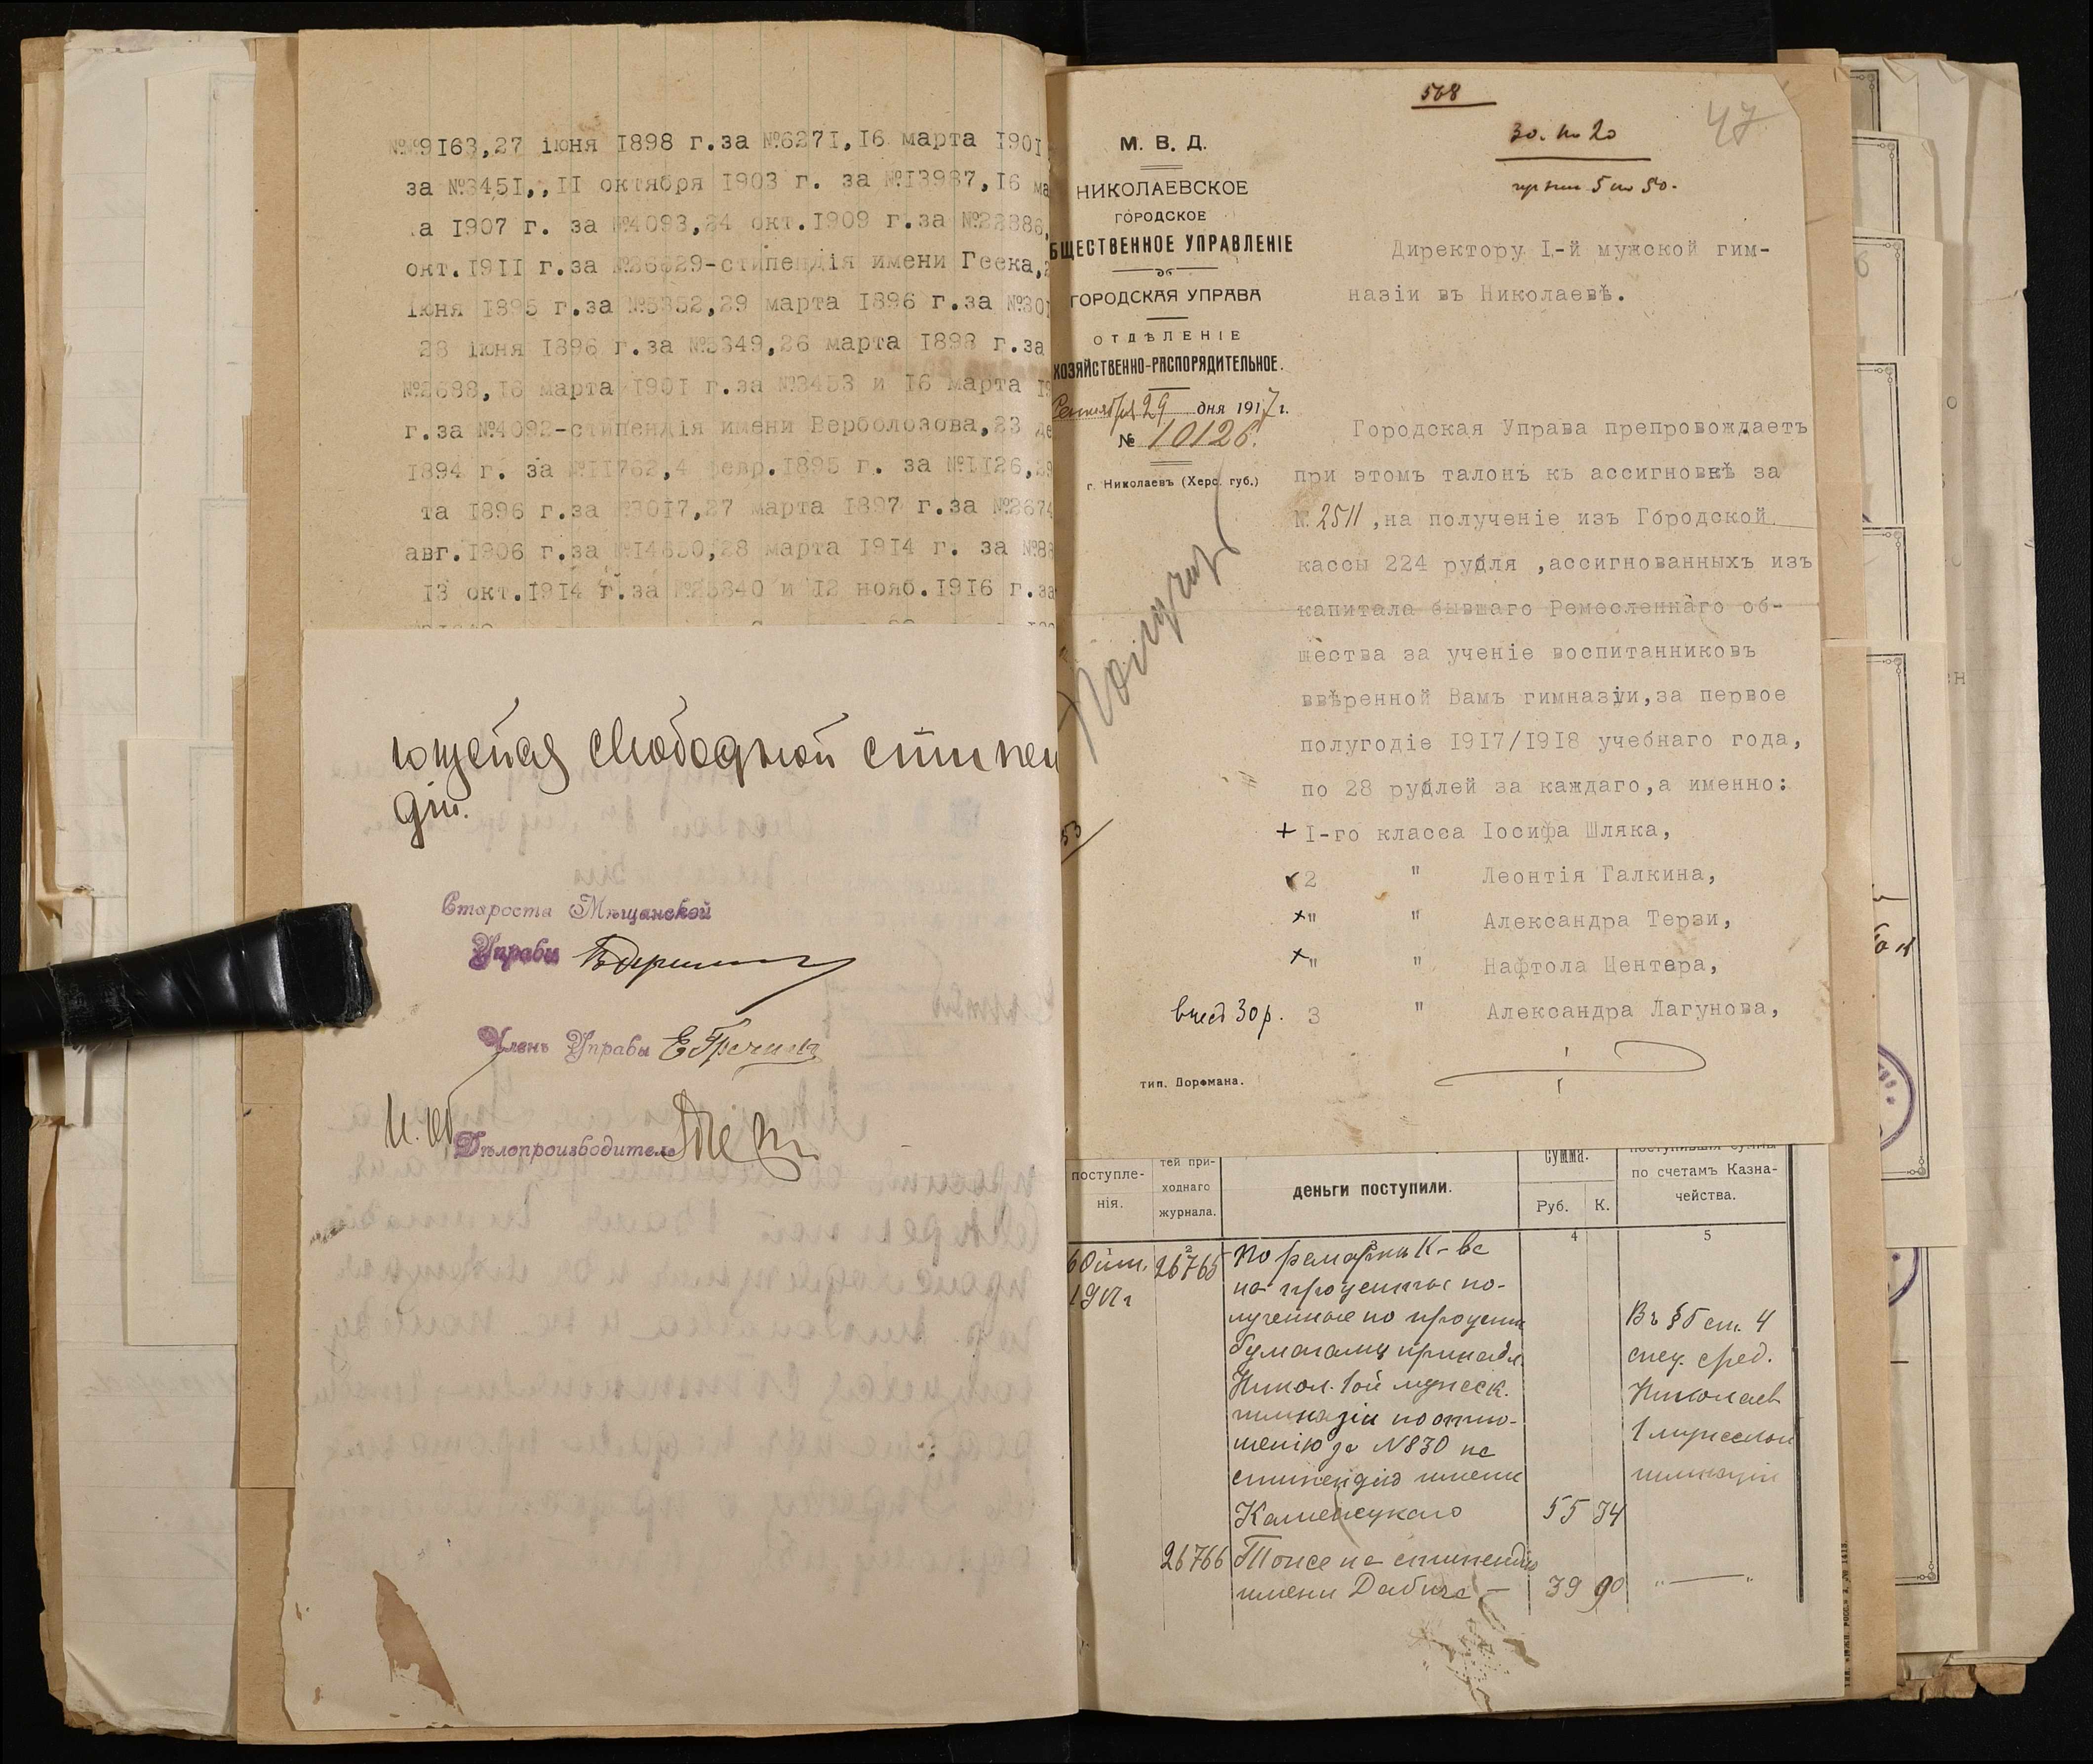 №№9163,27 іюня 1898 г.за №6271,16 марта 1901
за №3451,,11 октября 1903 г. за №13987,16 ма
а 1907 г. за №4093,24 окт.1909 г.за №22886,
окт.1911 г.за -стипендія имени Геека,
іюня 1895 г.за №5352,29 марта 1896 г.за №301
28 іюня 1896 г.за №5349,26 марта 1898 г.за
№2688,16 марта 1901 г.за №3453 и 16 марта 19
г.за №4092-стипендія имени Верболозова,23 де
1894 г. за №11762,4 февр.1895 г. за №1126,29
та 1896 г.за №3017,27 марта 1897 г.за №2674
авг.1906 г.за 28 марта 1914 г. за №88
13 окт.1914 г.за №25840 и 12 нояб.1916 г.за
ющейся свободной стипен
діи.
Староста Мѣщанской
Управы
Членъ Управы
И. об. Дѣлопроизводителя
568
30. по 20
5 по 50.
47
М. В. Д.
НИКОЛАЕВСКОЕ
ГОРОДСКОЕ
БЩЕСТВЕННОЕ УПРАВЛЕНІЕ
ГОРОДСКАЯ УПРАВА
ОТДѢЛЕНІЕ
ХОЗЯЙСТВЕННО-РАСПОРЯДИТЕЛЬНОЕ.
Сентября 29 дня 1917 г.
№ 10126.
г. Николаевъ (Херс. губ.)
Директору I-й мужской гим-
назіи въ Николаевѣ.
Городская Управа препровождаетъ
при этомъ талонъ къ ассигновкѣ за
№ 2511 ,на полученіе изъ Городской
кассы 224 рубля ,ассигнованныхъ изъ
капитала бывшаго Ремесленнаго об-
щества за ученіе воспитанниковъ
ввѣренной Вамъ гимназіи,за первое
полугодіе 1917/1918 учебнаго года,
по 28 рублей за каждаго,а именно:
53
+ I-го класса Іосифа Шляка,
2 " Леонтія Галкина,
+ " " Александра Терзи,
+ " " Нафтола Центера,
внес 30 р. 3 " Александра Лагунова,
тип. Дорфмана.
поступле-
нія.
тей при-
ходнаго
журнала.
деньги поступили.
сумма.
Руб. К.
поступившія суммы
по счетамъ Казна-
чейства.
1 2 3 4 5
6 Окт. 26765
1917 г
на проценты по-
лученные по процент
бумагамъ принадл.
Никол. 1ой мужск.
гимназіи по отно-
шенію за №830 на
стипендію имени
Каменецкаго 55 34
Въ §5 ст. 4
спец. сред.
Николаев
1 мужской
гимназіи
26766 Тоже на стипендію
имени Дабича — 39 90 " — "